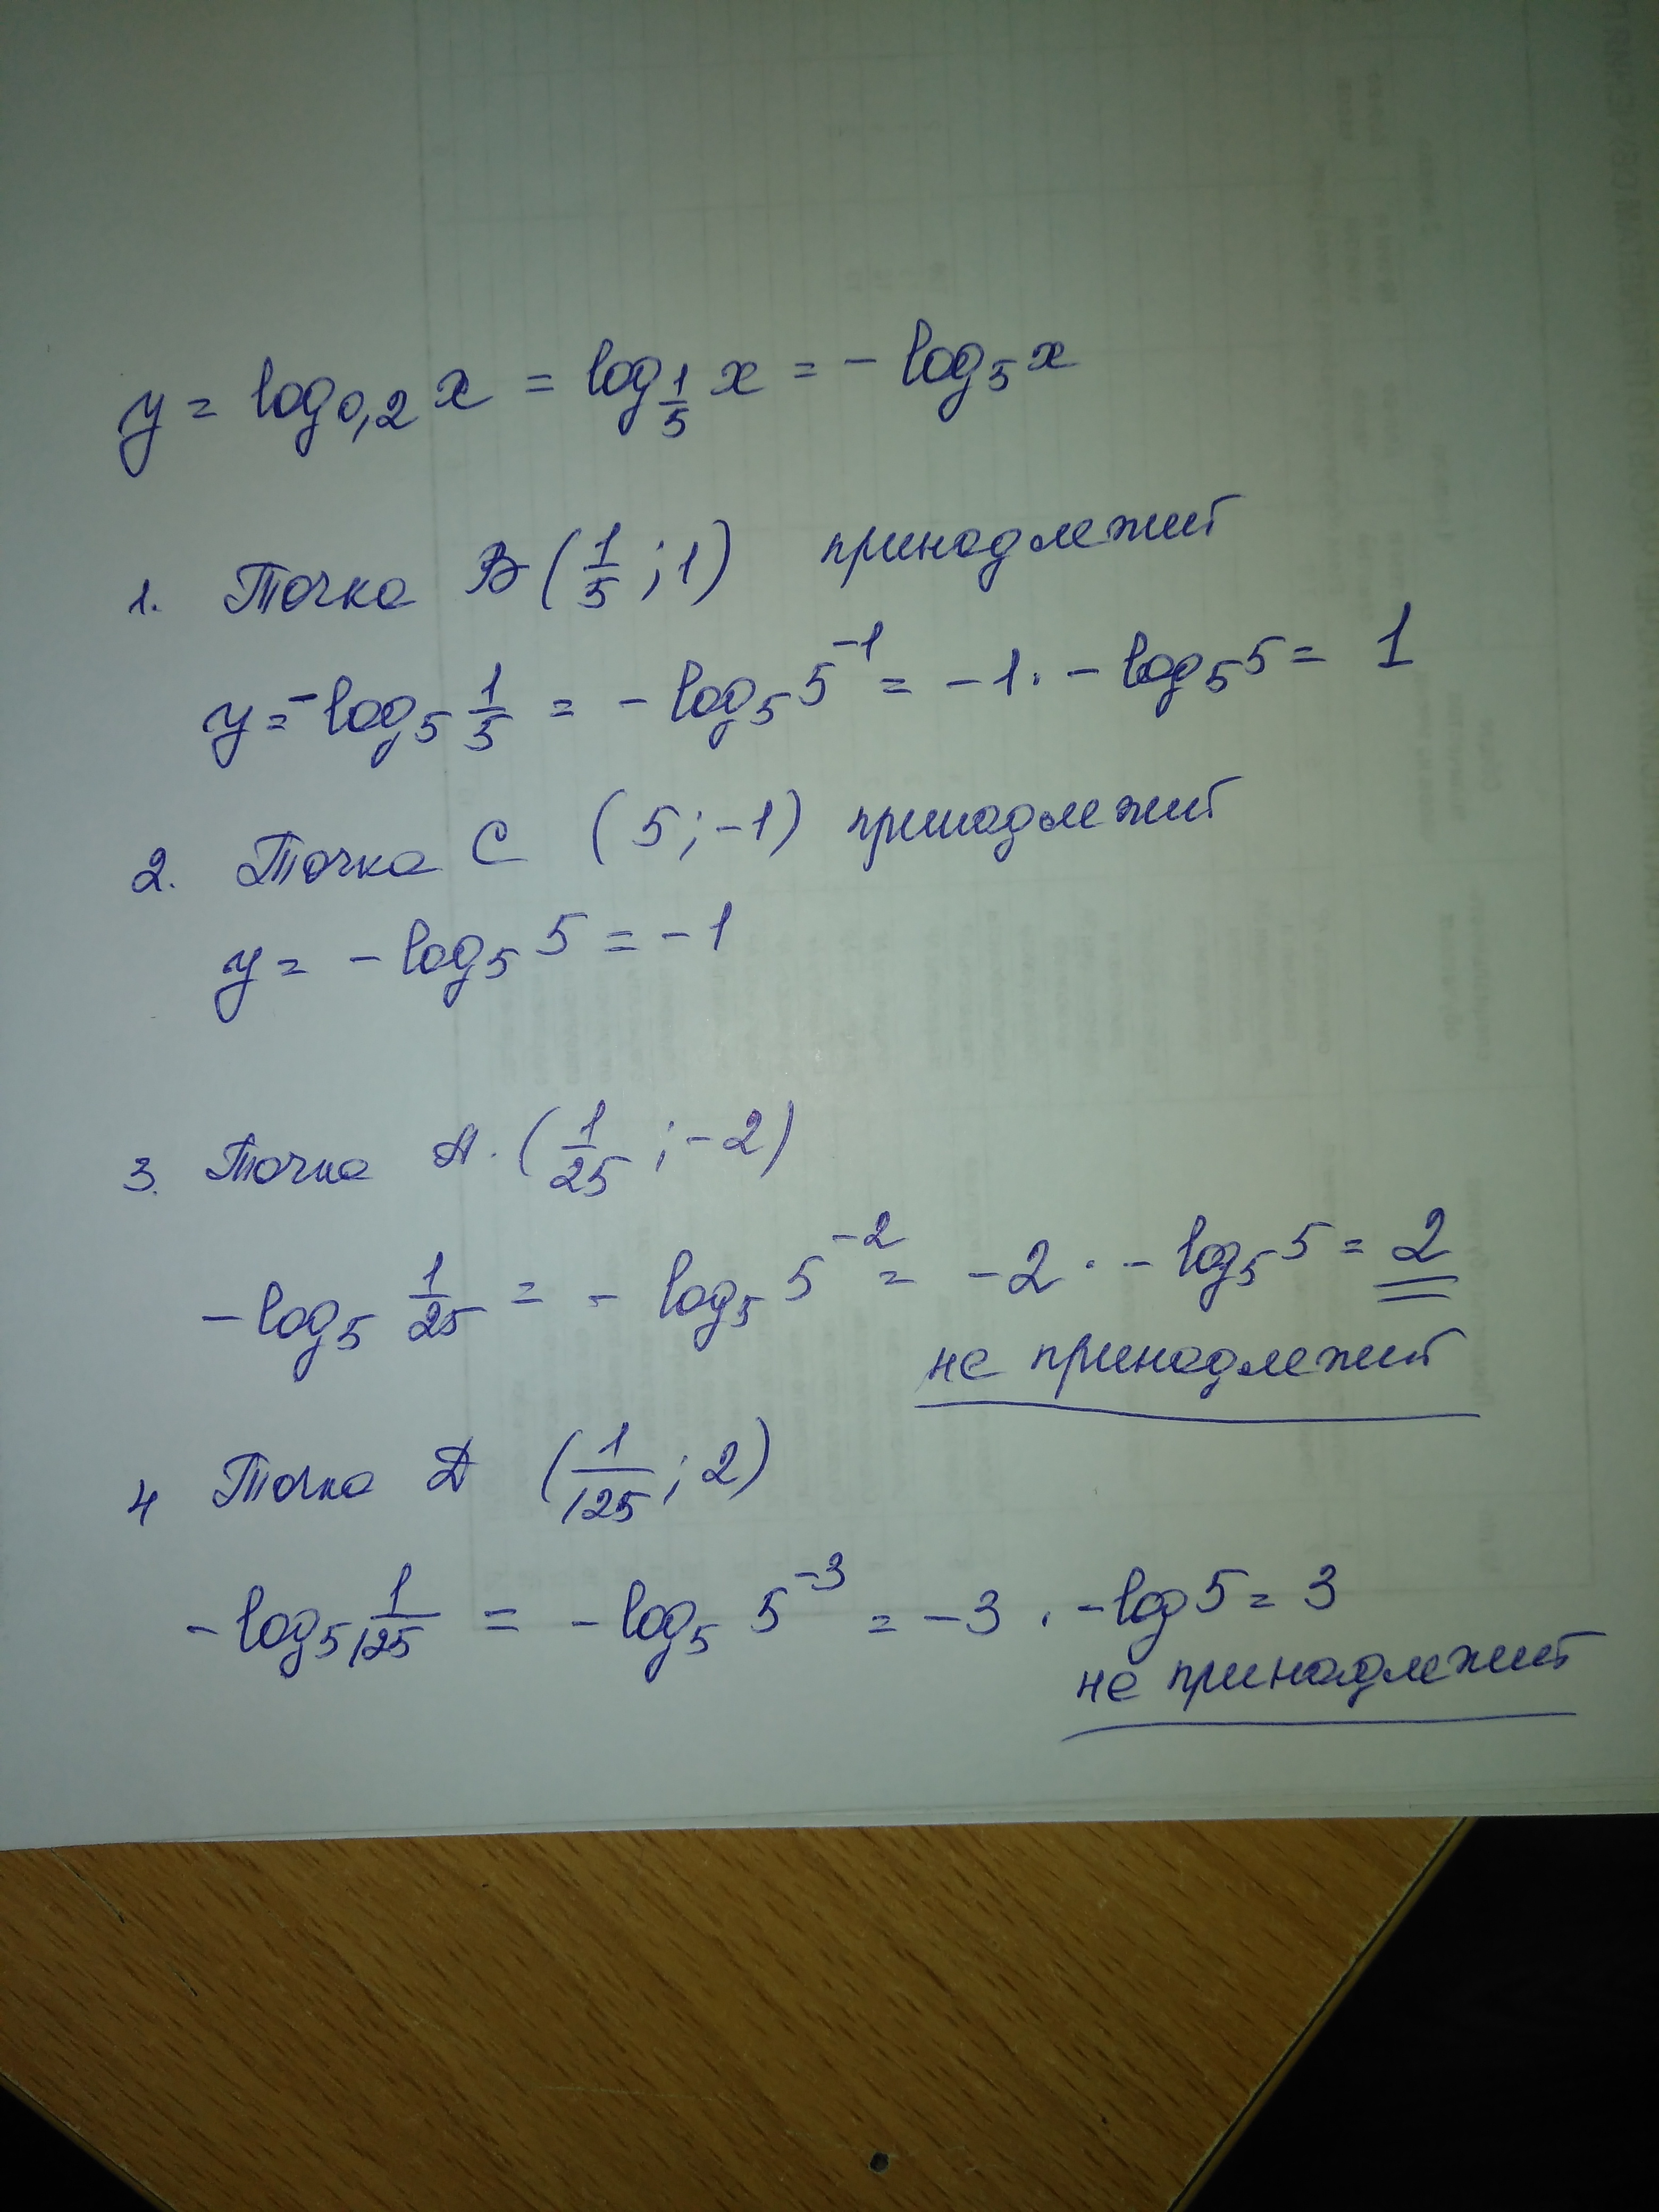 y = log₀,₂ x = log_{1/5} x = - log₅ x
1. Точка B (1/5 ; 1) принадлежит
y = - log₅ 1/5 = - log₅ 5⁻¹ = -1 · - log₅ 5 = 1
2. Точка C (5 ; -1) принадлежит
y = - log₅ 5 = -1
3. Точка A. (1/25 ; -2)
- log₅ 1/25 = - log₅ 5⁻² = -2 · - log₅ 5 = 2
не принадлежит
4 Точка D (1/125 ; 2)
- log₅ 1/125 = - log₅ 5⁻³ = -3 · - log 5 = 3
не принадлежит